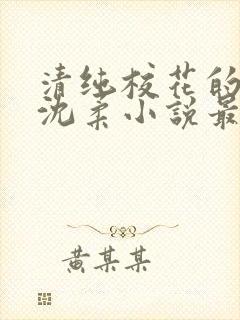 清纯校花的
沈柔小説最
黄某某